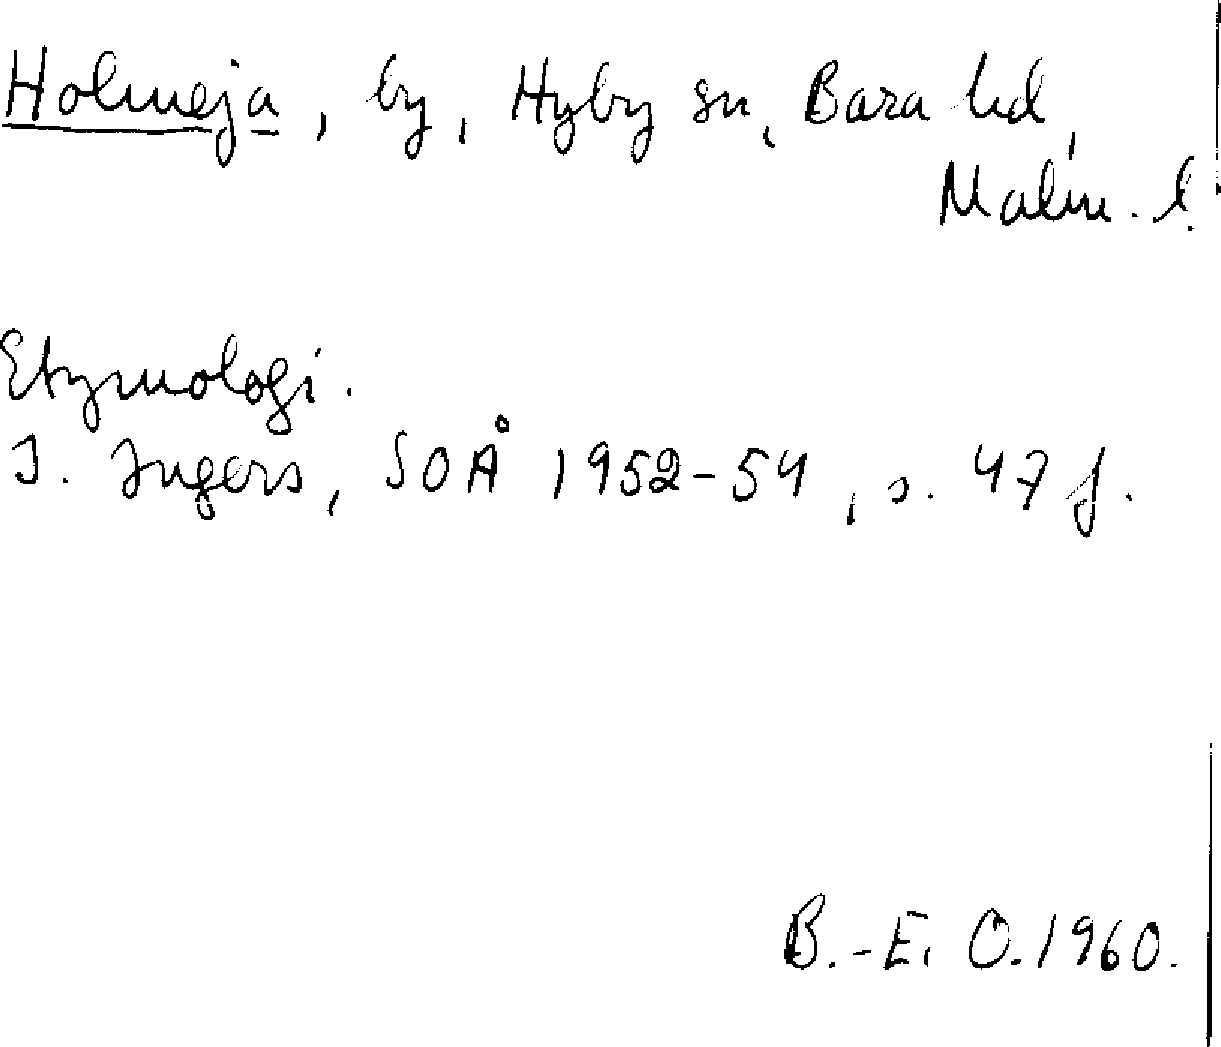 Holmeja, by, Hyby sn, Bara hd,
Malm. l.
Etymologi.
I. Ingers, SOÅ 1952-54, s. 47 f.
B.-E. O. 1960.